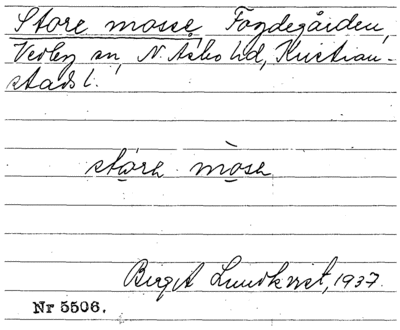 Store mosse, Fogdegården,
Vedby sn, N. Åsbo hd, Kristian-
stads l.
stórɛ mòsɛ
Birgit Lundkvist, 1937.
Nr 5506.